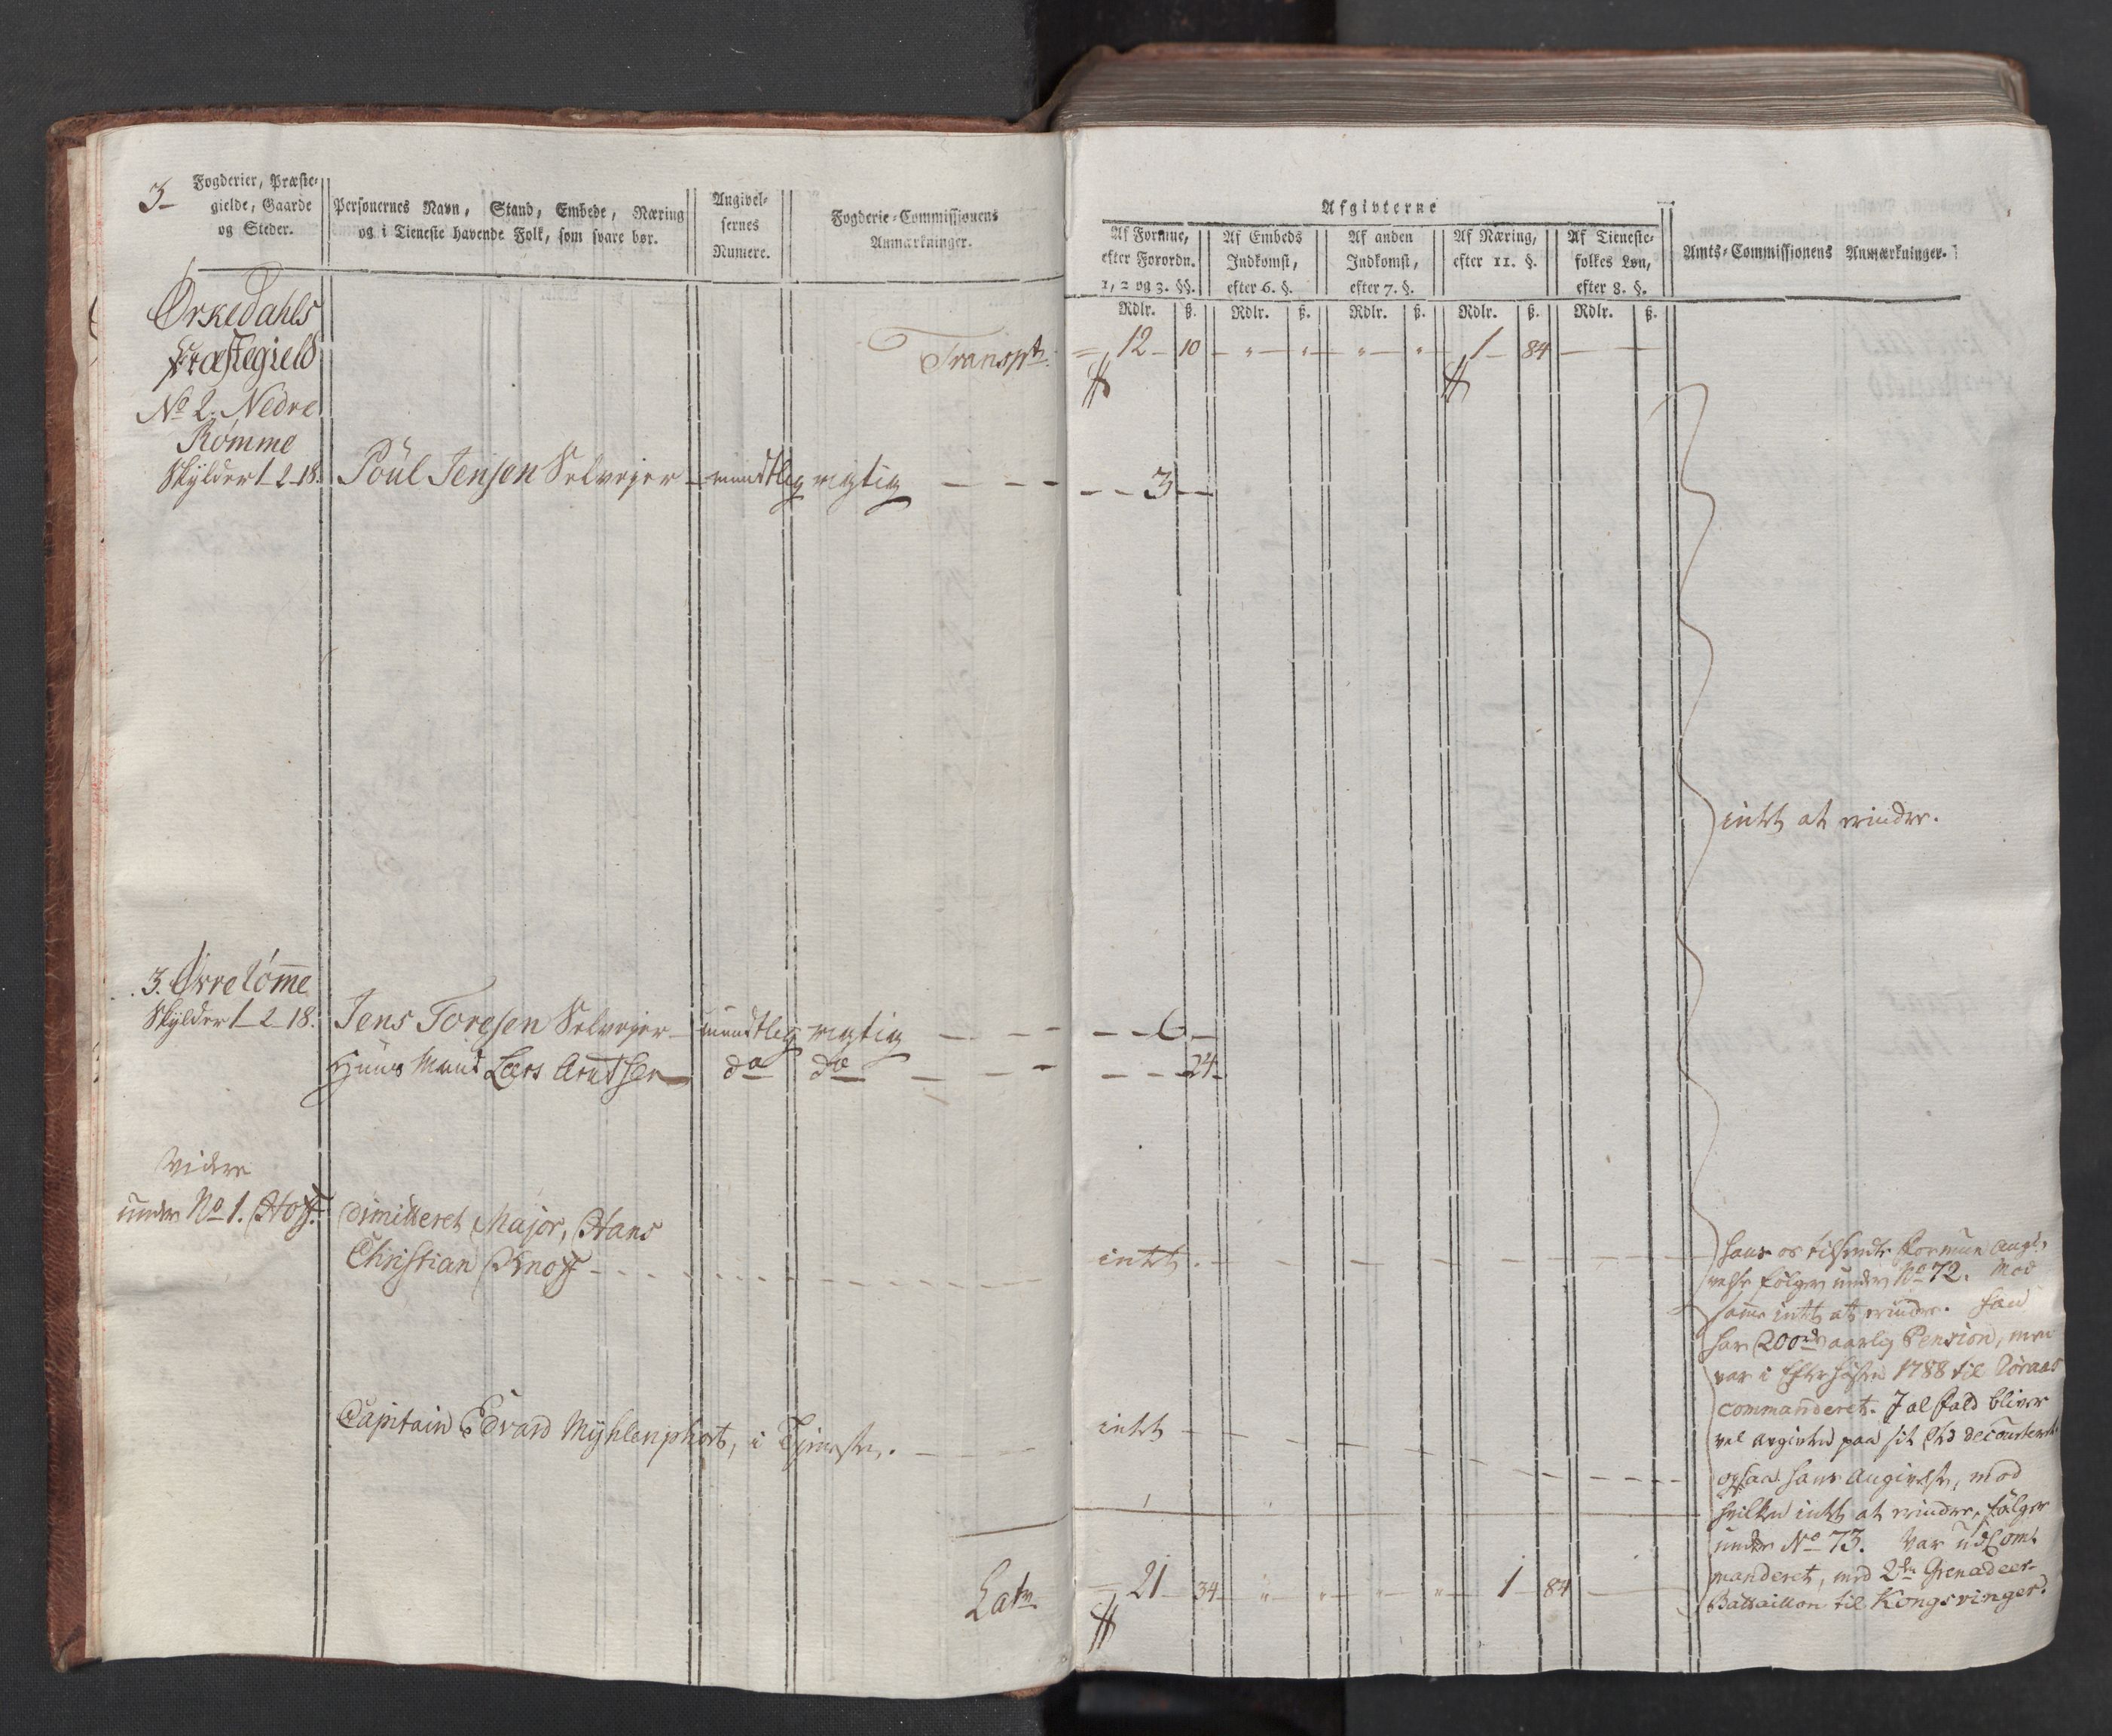 3
Fogderier, Præste-
gielde, Gaarde
og Steder.
Personernes Navn, Stand, Embede, Næring
og i Tieneste havende Folk, som svare bør.
Angivel-
sernes
Numere.
Fogderie-Commissionens
Anmærkninger.
Ørkedahls
Præstegield
No 2. Nedre
Rømme
Skylder 1-2-18.
Transpt
Poul Jensen Selvejer mundtlig rigtig
3. Øvre Rømme
Skylder 1-2-18.
Jens Toresen Selvejer mundtlig rigtig
Huus Mand Lars Arntsen do do
Videre
under No 1. Hoff.
Dimitteret Major, Hans
Christian Knoff
Capitain Edvard Myhlenphort, i Tjeneste.
Latr
Afgivterne
Af Formue,
efter Forordn.
1, 2 og 3. §§.
Af Embeds
Indkomst,
efter 6. §.
Af anden
Indkomst,
efter 7. §.
Af Næring,
efter 11. §.
Af Tieneste-
folkes Løn,
efter 8. §.
Amts-Commissionens Anmærkninger.
Rdlr. ß. Rdlr. ß. Rdlr. ß. Rdlr. ß. Rdlr. ß.
12 10 " " " " 1 84
3
intet at erindre.
6
24
intet.
hans os tilsendte Formue Angi-
velse følger under No 72. Mod
samme intet at erindre. Han
har 200rd aarlig Pension, men
var i Efterhøsten 1788 til Røraas
commanderet. I al fald bliver
vel Avgivten paa sit Sted decourteret.
intet
ogsaa hans Angivelse, mod
hvilken intet at erindre, følger
under No 73. Var ud Com-
manderet, med 2den Grenadeer-
Battaillon til Kongsvinger.
21 34 " " " " 1 84